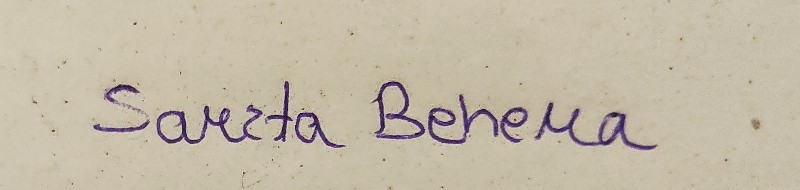 Sarita Behera